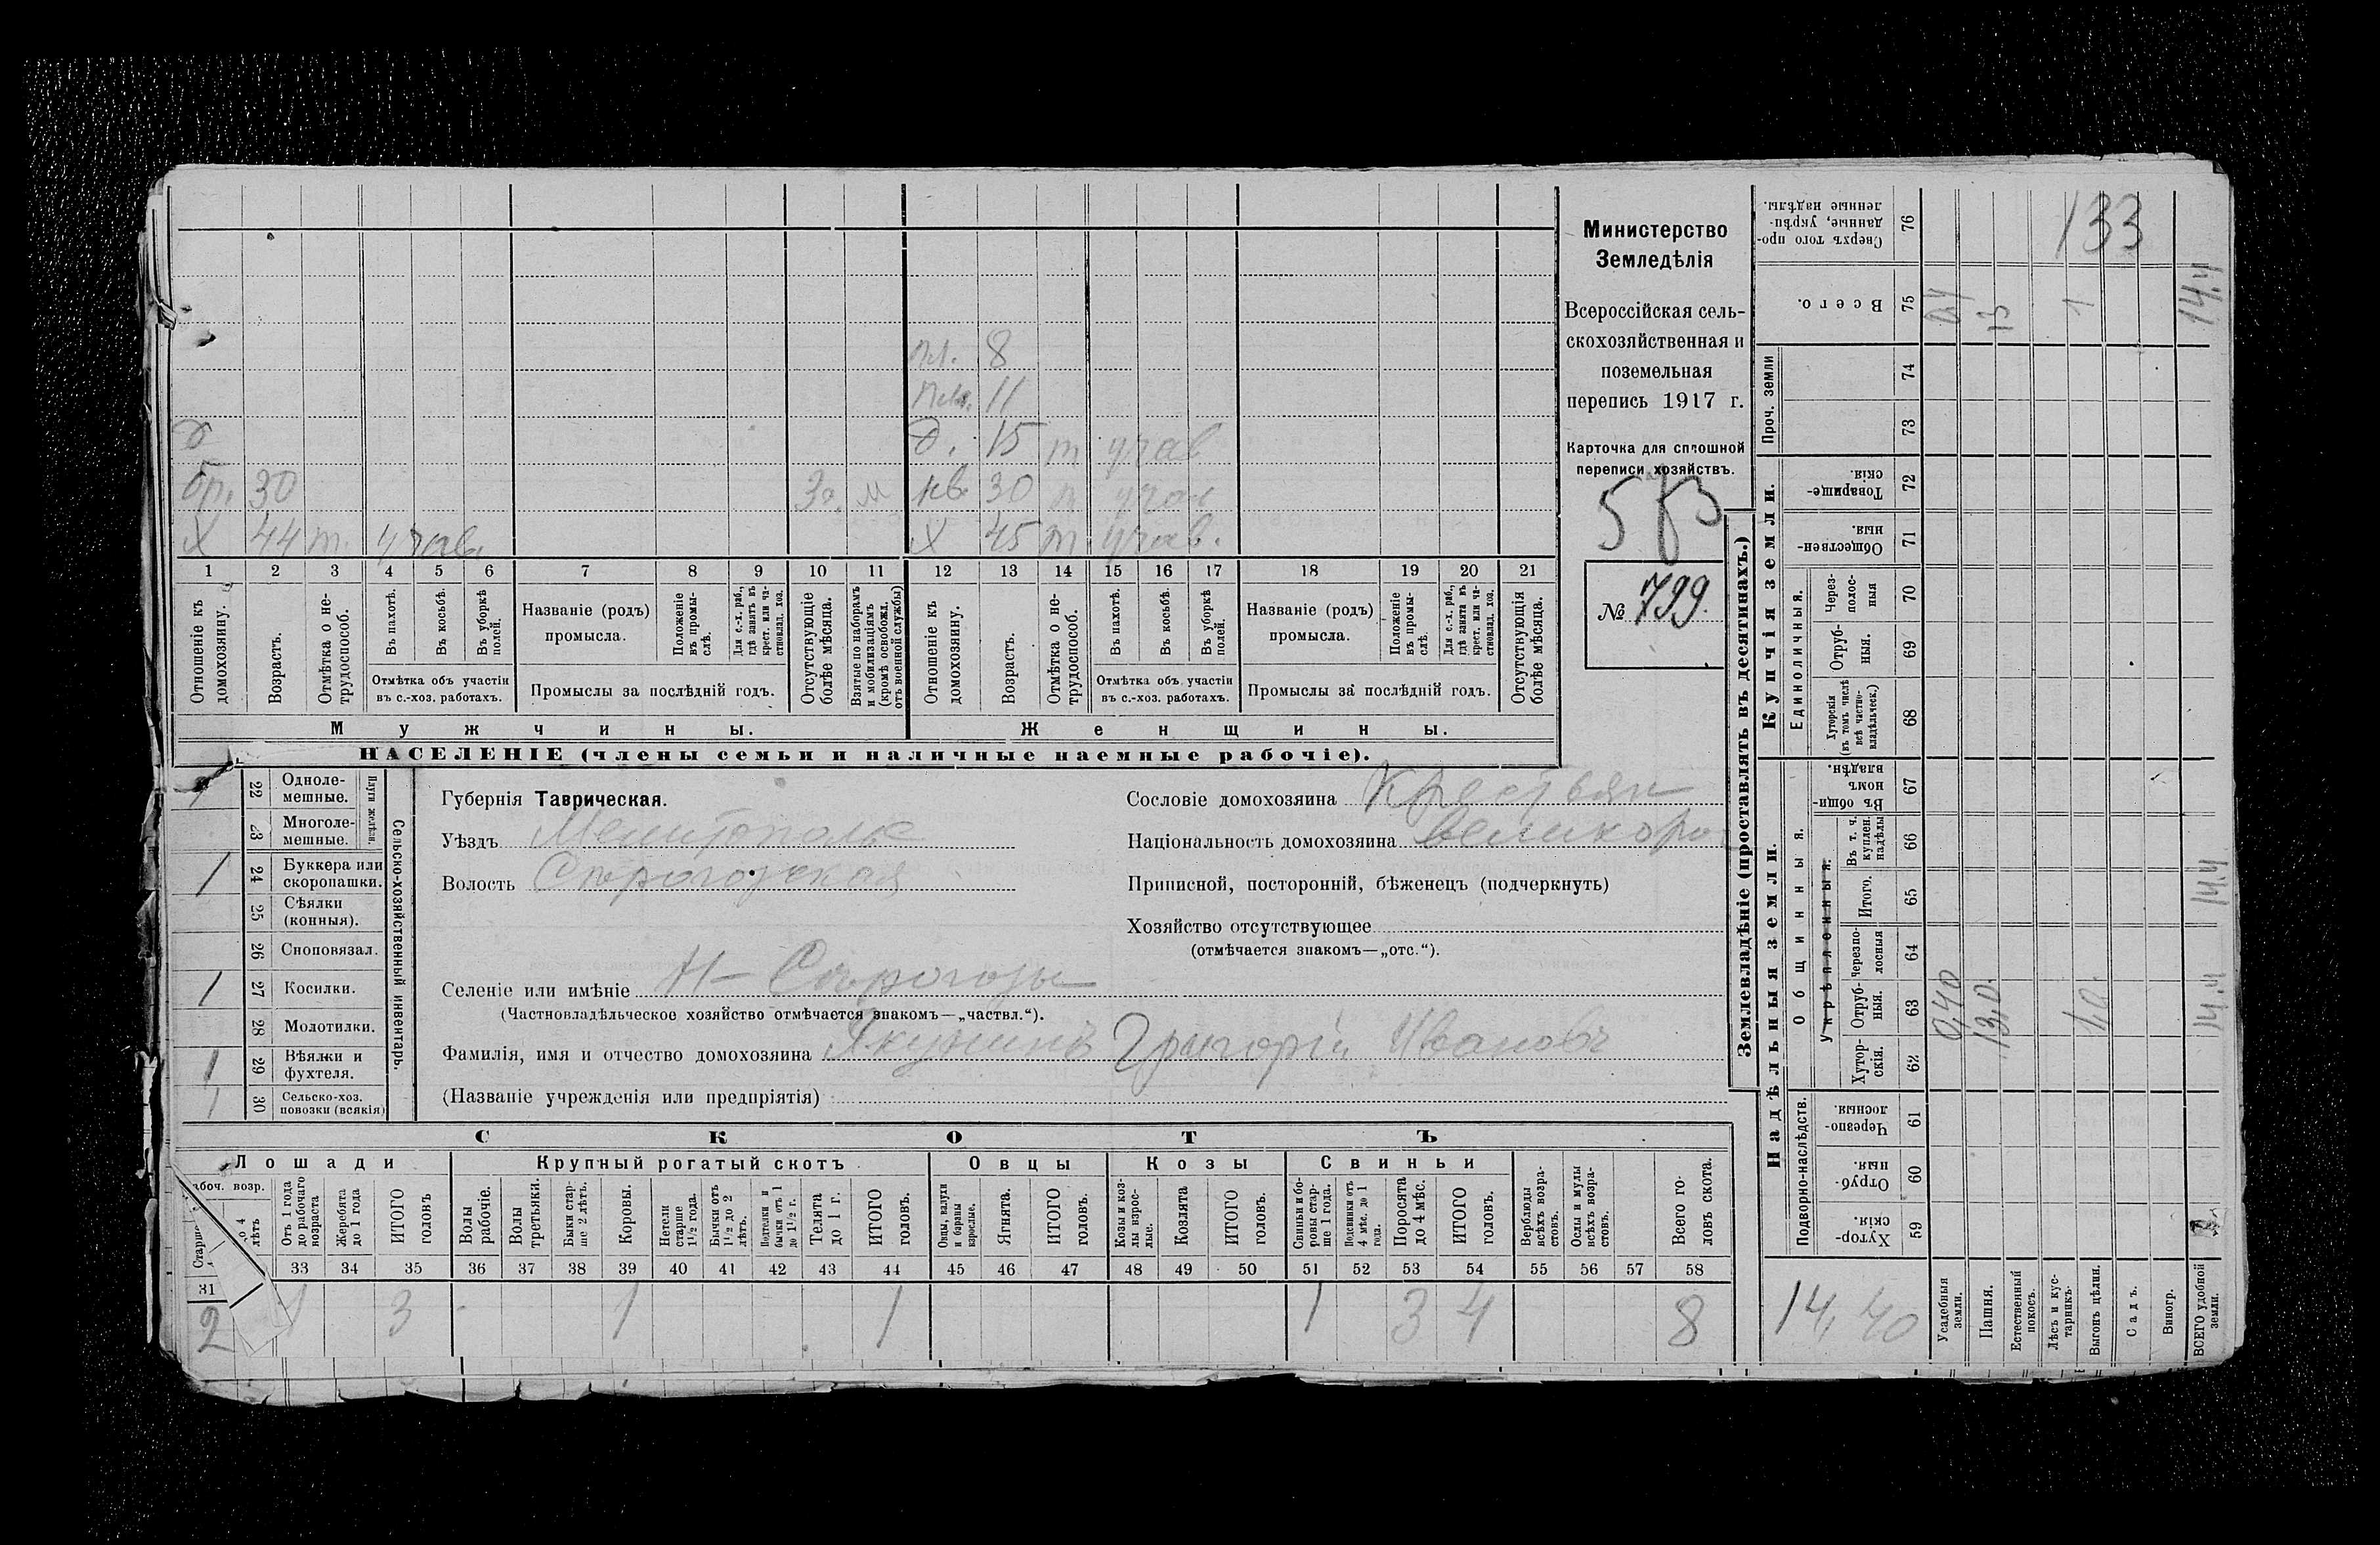 пл. 8
плм. 11
д. д. 15 т учав
бр. 30 За. м нв. 30 п учав
Х 44 т. учав. Х 45 т. учав.
1 2 3 4 5 6 7 8 9 10 11 12 13 14 15 16 17 18 19 20 21
Отношеніе къ домохозяину.
Возрастъ.
Отмѣтка о нетрудоспособ.
Въ пахотѣ.
Въ косьбѣ.
Въ уборкѣ полей.
Отмѣтка объ участіи
въ с.-хоз. работахъ.
Названіе (родъ)
промысла.
Положеніе въ промыслѣ.
Для с.-х. раб., гдѣ занятъ въ крест. или частновлад. хоз.
Промыслы за послѣдній годъ.
Отсутствующіе болѣе мѣсяца.
Взятые по наборамъ и мобилизаціямъ (кромѣ освобожд. отъ военной службы)
Отношеніе къ домохозяину.
Возрастъ.
Отмѣтка о нетрудоспособ.
Въ пахотѣ.
Въ косьбѣ.
Въ уборкѣ полей.
Отмѣтка объ участіи
въ с.-хоз. работахъ.
Названіе (родъ)
промысла.
Положеніе въ промыслѣ.
Для с.-х. раб., гдѣ занята въ крест. или частновлад. хоз.
Промыслы за послѣдній годъ.
Отсутствующія болѣе мѣсяца.
Мужчины. Женщины.
НАСЕЛЕНІЕ (члены семьи и наличные наемные рабочіе).
Министерство
Земледѣлія
Всероссійская сель-
скохозяйственная и
поземельная
перепись 1917 г.
Карточка для сплошной
переписи хозяйствъ.
№ 799.
Сельско-хозяйственный инвентарь.
Плуги желѣзн.
1 22 Одноле-
мешные.
23 Многоле-
мешные.
1 24 Буккера или
скоропашки.
25 Сѣялки
(конныя).
26 Сноповязал.
1 27 Косилки.
28 Молотилки.
1 29 Вѣялки и
фухтеля.
1 30 Сельско-хоз.
повозки (всякія)
Губернія Таврическая.
Уѣздъ Мелитопольс
Волость Сѣрогозская
Селеніе или имѣніе Н- Сѣрогозы
(Частновладѣльческое хозяйство отмѣчается знакомъ—„частвл.“).
Фамилія, имя и отчество домохозяина Якунинъ Григорій Ивановъ
(Названіе учрежденія или предпріятія)
Сословіе домохозяина Крестьян
Національность домохозяина великоро
Приписной, посторонній, бѣженецъ (подчеркнуть)
Хозяйство отсутствующее
(отмѣчается знакомъ—„отс.“).
СКОТЪ
Лошади Крупный рогатый скотъ Овцы Козы Свиньи
абоч. возр.
Старше
до 4 лѣтъ
Отъ 1 года до рабочаго возраста
Жеребята до 1 года
ИТОГО головъ
Волы рабочіе.
Волы третьяки.
Быки старше 2 лѣтъ.
Коровы.
Нетели старше 1½ года.
Бычки отъ 1½ до 2 лѣтъ.
Подтелки и бычки отъ 1 до 1½ г.
Телята до 1 г.
ИТОГО головъ.
Овцы, валухи и бараны взрослые.
Ягнята.
ИТОГО головъ.
Козы и козлы взрослые.
Козлята
ИТОГО головъ.
Свиньи и боровы старше 1 года.
Подсвинки отъ 4 мѣс. до 1 года.
Поросята до 4 мѣс.
ИТОГО головъ.
Верблюды всѣхъ возрастовъ.
Ослы и мулы всѣхъ возрастовъ.
Всего головъ скота.
31 33 34 35 36 37 38 39 40 41 42 43 44 45 46 47 48 49 50 51 52 53 54 55 56 57 58
2 1 3 1 1 1 3 4 8
Землевладѣніе (проставлять въ десятинахъ.)
Надѣльныя земли. Купчія земли. Проч. земли
Подворно-наслѣдств.
Общинныя.
Укрѣпленныя.
Единоличныя.
Хуторскія. 59
Отрубныя. 60
Черезполосныя. 61
Хуторскія. 62
Отрубныя. 63
Черезполосныя 64
Итого. 65
Въ т. ч. куплен. надѣлы 66
Въ общинномъ владѣн. 67
Хуторскія (въ томъ числѣ всѣ частновладѣльческ.) 68
Отрубныя. 69
Черезполосныя 70
Общественныя. 71
Товарищескія. 72
73
74
Всего. 75
Сверхъ того проданные, укрѣпленные надѣлы. 76
133
14,40
Усадебныя земли. 0,40
Пашня. 13,0 13
Естественный покосъ.
Лѣсъ и кустарникъ.
Выгонъ цѣлин. 1,0 1
Садъ.
Виногр.
ВСЕГО удобной земли. 14,4 14,4 14,4